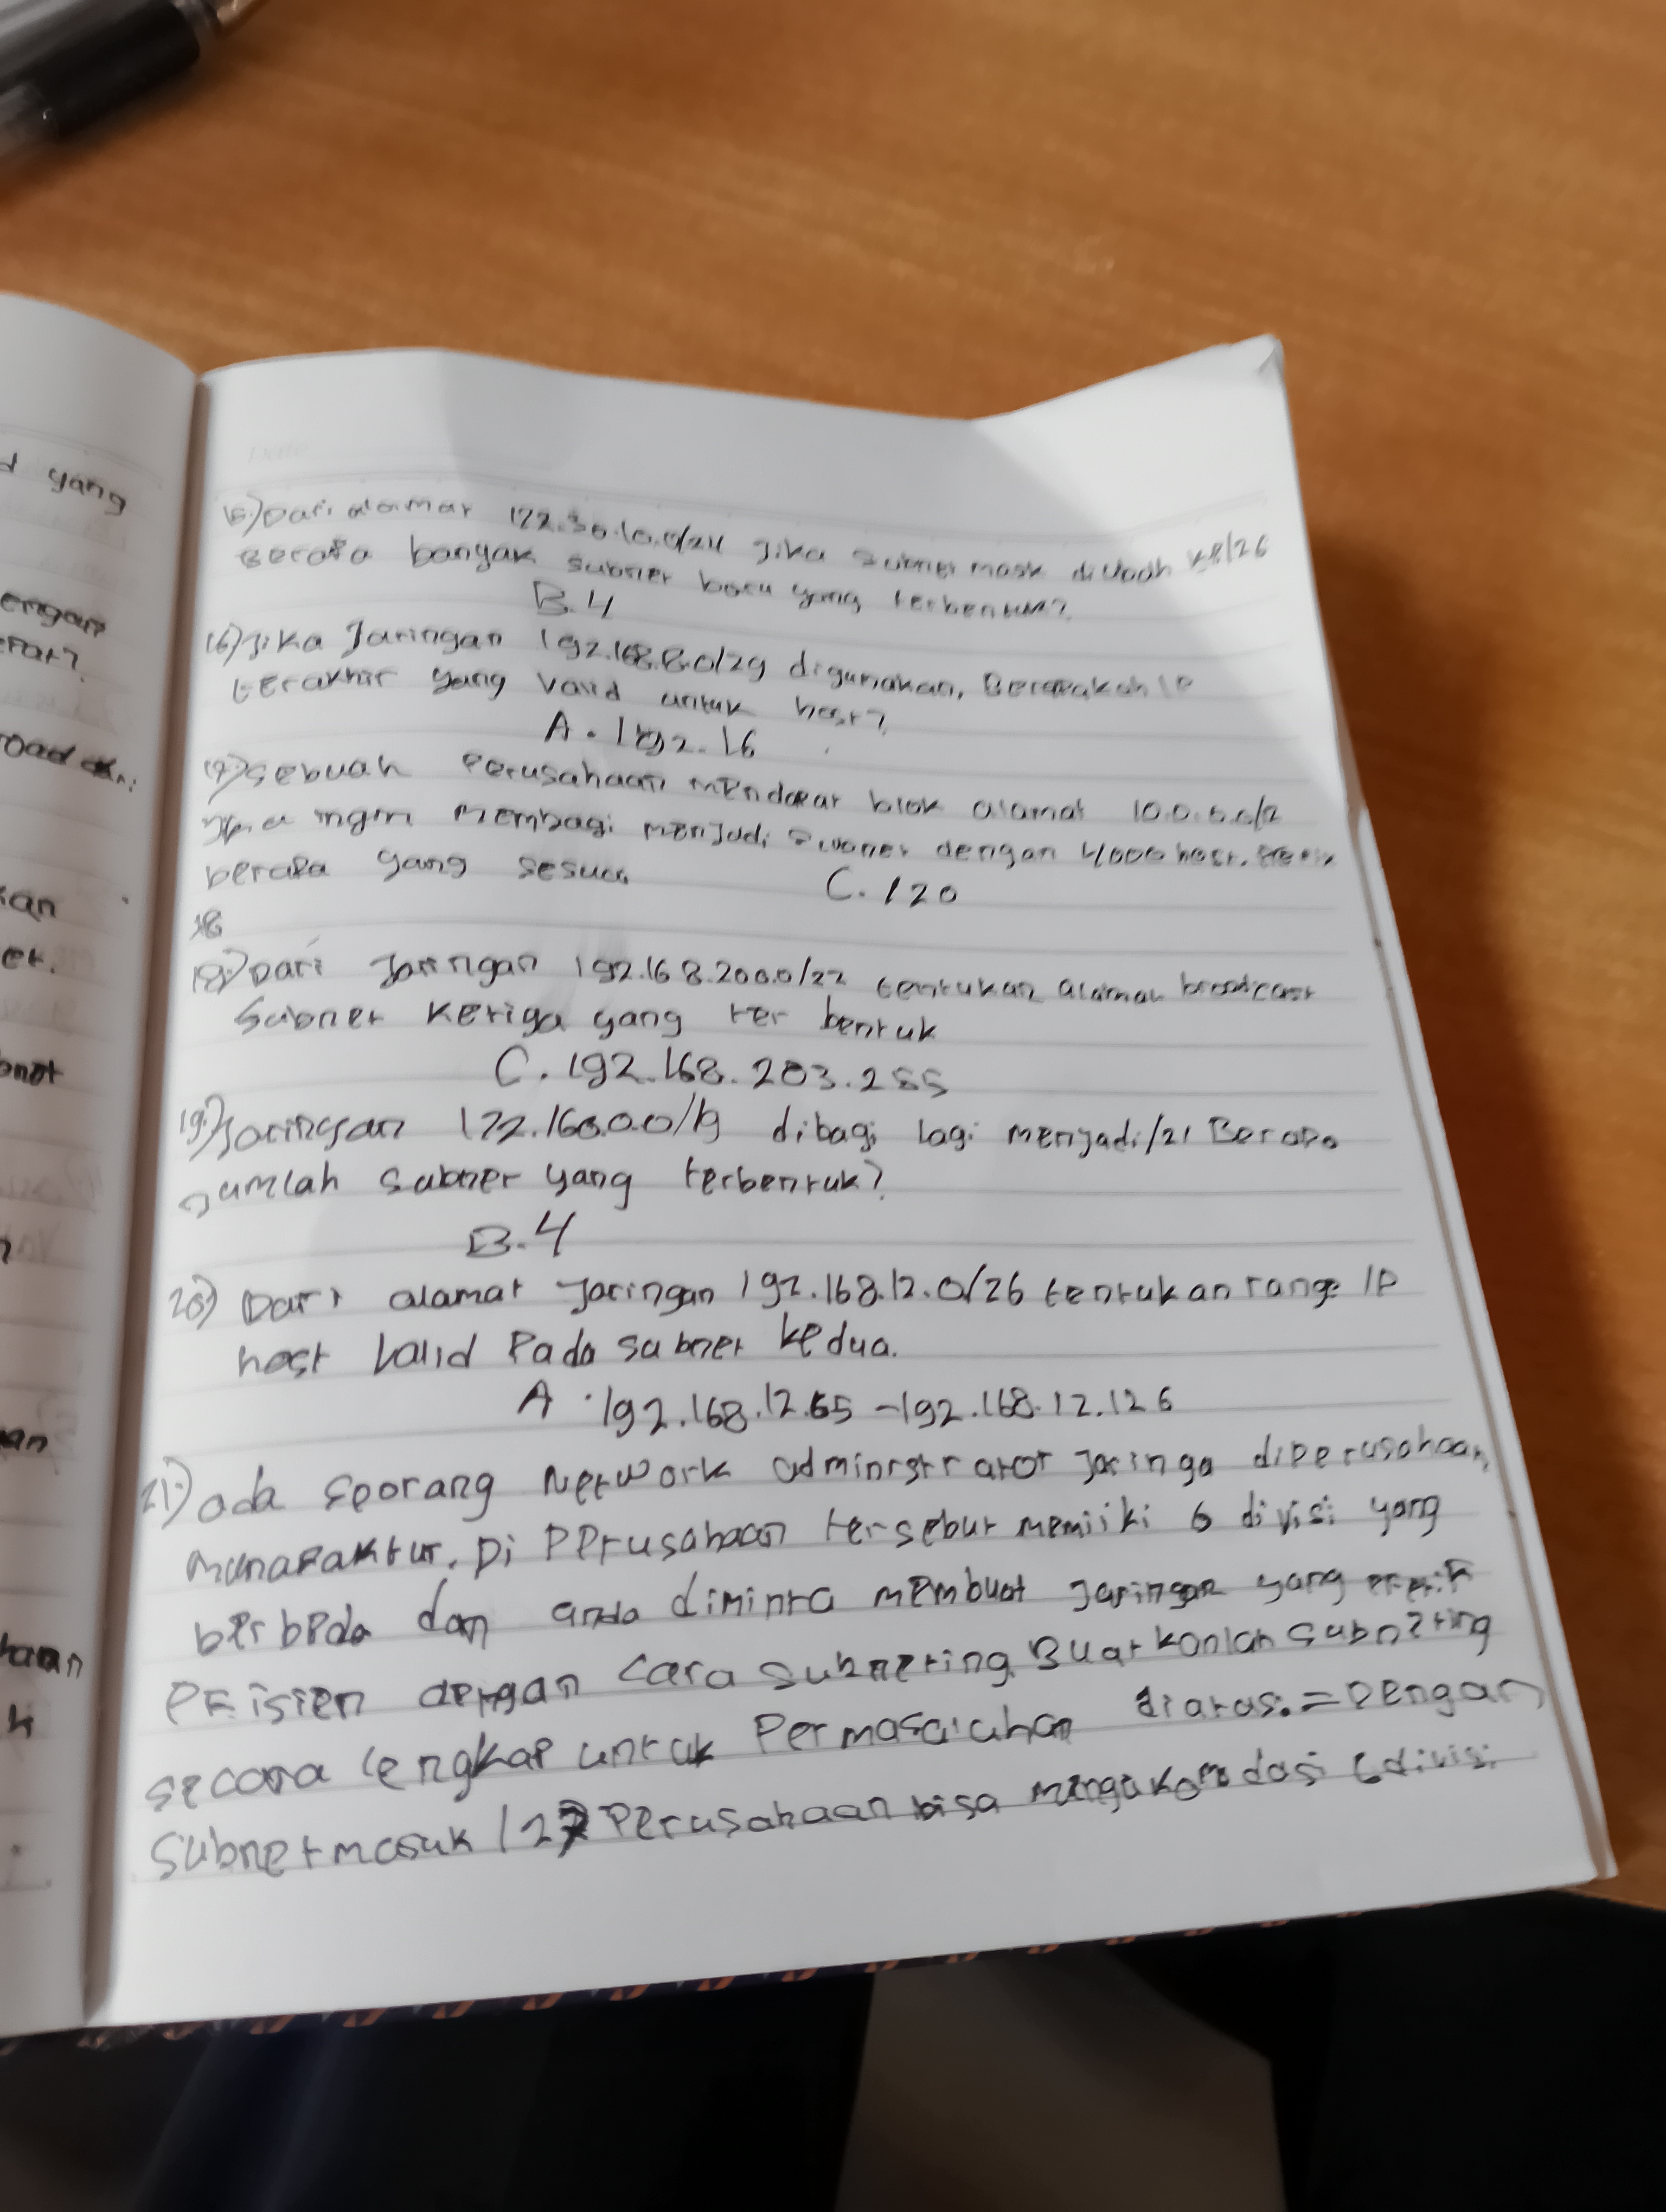 d yang
engan
erat?
road
kan
er.
bnet
an
haan
k
15.) Dari alamat 172.30.10.0/24 Jika subnet mask diubah ke/26
Berapa banyak subnet baru yang terbentuk?
B.4
16) Jika Jaringan 192.168.8.0/29 digunakan, Berapakah IP
terakhir yang Valid untuk host?
A. 192.16
17.) Sebuah Perusahaan mendapat blok alamat 10.0.0.0/8
ingin membagi menjadi subnet dengan 4000 host. Prefix
berapa yang sesuai
C. /20
18
18.) Dari Jaringan 192.168.200.0/22 tentukan alamat broadcast
Subnet Ketiga yang ter bentuk
C. 192.168.203.255
19.) Jaringan 172.160.0.0/19 dibagi lagi menjadi/21 Berapa
Jumlah Subnet yang terbentuk?
B.4
20.) Dari alamat Jaringan 192.168.12.0/26 tentukan range IP
host Valid Pada subnet kedua.
A. 192.168.12.65 - 192.168.12.126
21.) ada seorang Network administrator Jaringa diperusahaan
manafaktur. Di Perusahaan tersebut memiiki 6 divisi yang
berbeda dan anda diminta membuat Jaringan yang
efisien dengan cara subnetting. Buatkanlah Subnetting
secara lengkap untuk Permasalahan diatas. = Dengan
Subnetmasuk /27 Perusahaan bisa mengakomodasi 6 divisi